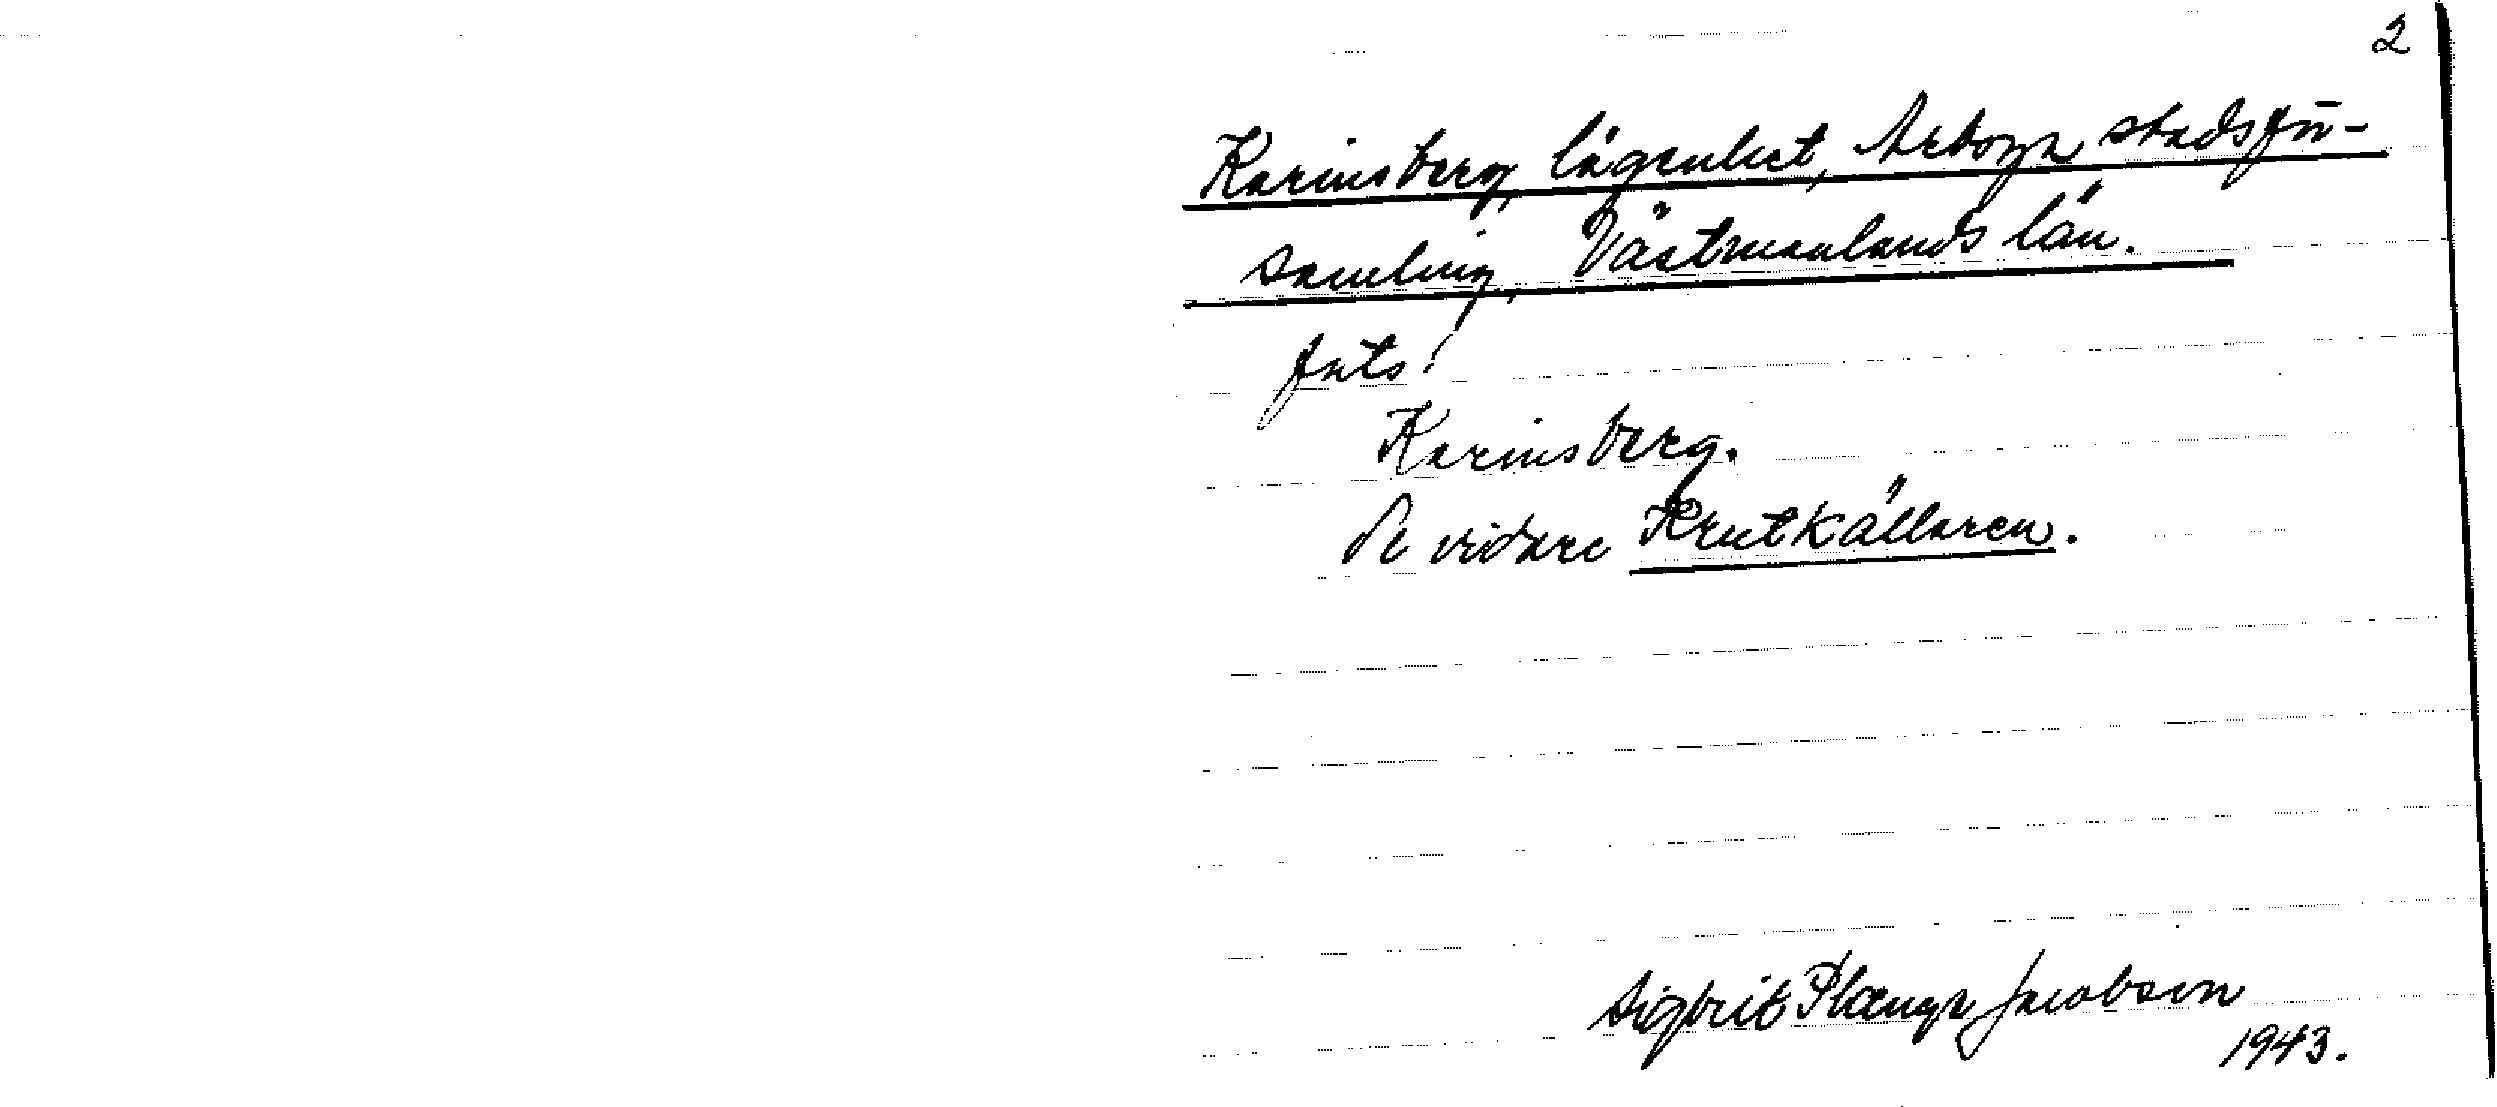 2
Karinsberg, lägenhet, Arboga stadsför-
samling, Västmanlands län.
Karinsberg.
Se vidare Krutkällaren.
Sigbrit Plænge Jacobson
1943.